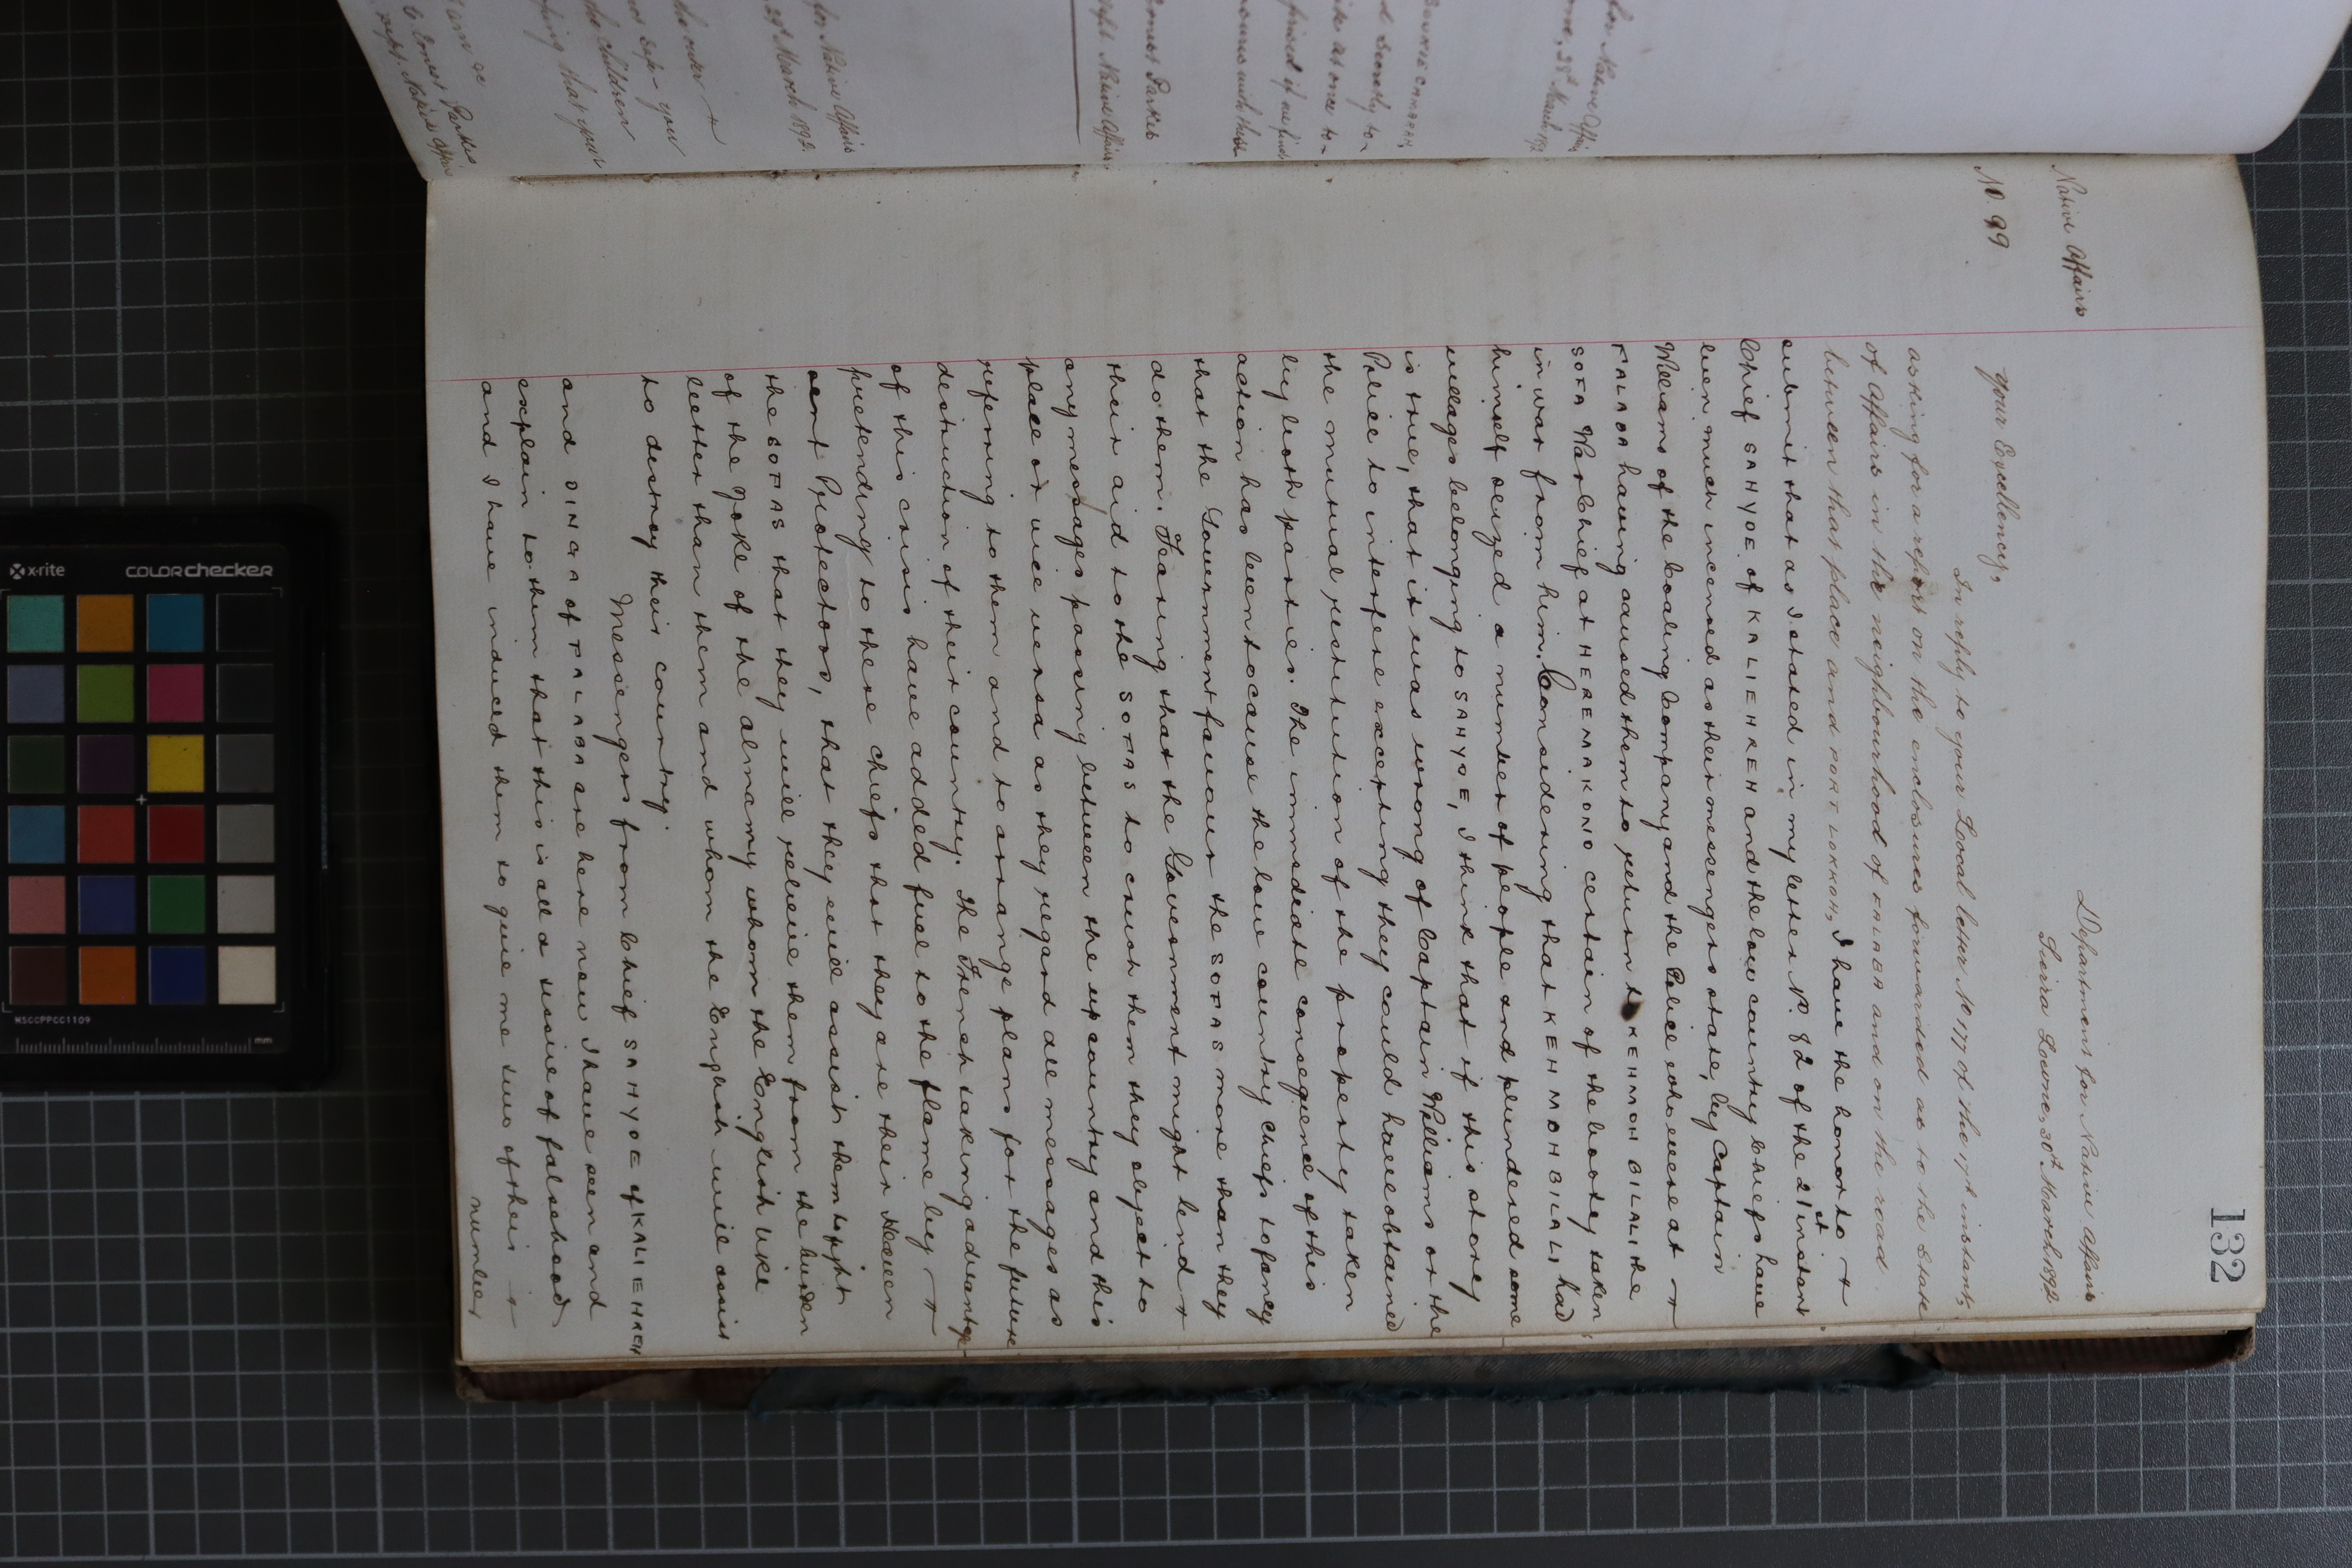 132
Native Affairs
No. 99
Department for Native Affairs
Sierra Leone, 30th March 1892
Your Excellency,
In reply to your Local letter No 177 of the 17th instant,
asking for a report on the enclosures forwarded as to the State
of Affairs in the neighbourhood of FALABA and on the road
between that place and PORT LOKKOH, I have the honor to
submit that as I stated in my letter No. 82 of the 21st instant
Chief SAHYOE of KALIEHREH and the low country Chiefs have
been much incensed as their messengers state, by Captain
Williams of the Coaling Company and the Police who were at
FALABA having caused them to return to KEHMOH BILALI the
SOFA War Chief at HEREMAKONO certain of the booty taken
in war from him. Considering that KEHMOHBILALI had
himself seized a number of people and plundered some
villages belonging to SAHYOE, I think that if this storey
is true, that it was wrong of Captain Williams or the
Police to interfere excepting they could have obtained
the mutual restitution of the property taken
by both parties. The immediate consequence of this
action has been to cause the low country chiefs to fancy
that the Government favour the SOFAS more than they
do them. Fearing that the Government might lend
their aid to the SOFAS to crush them they object to
any messages passing between the up country and this
place or vice versa as they regard all messages as
refering to them and to arrange plans for the future
destruction of their country. The French taking advantage
of this crisis have added fuel to the flame by
pretending to these chiefs that they are their Heaven
sent Protectors, that they will assist them to fight
the SOFAS that they will relieve them from the burden
of the yoke of the almamy whom the English like
better than them and whom the English will assist
to destroy their country.
Messengers from Chief SAHYOE of KALIEHREH
and DINGA of FALABA are here now I have seen and
explain to them that this is all a tissue of falsehood
and I have induced them to give me two of their
number
for Native Affairs
28th March 1892
Ernest Parkes
Supt. Native Affairs
for Native Affairs
29th March 1892.
the children
that your
I am &c
Ernest Parkes
Supt. Native Affairs
x-rite
COLORchecker
MSCCPPCC1109
mm